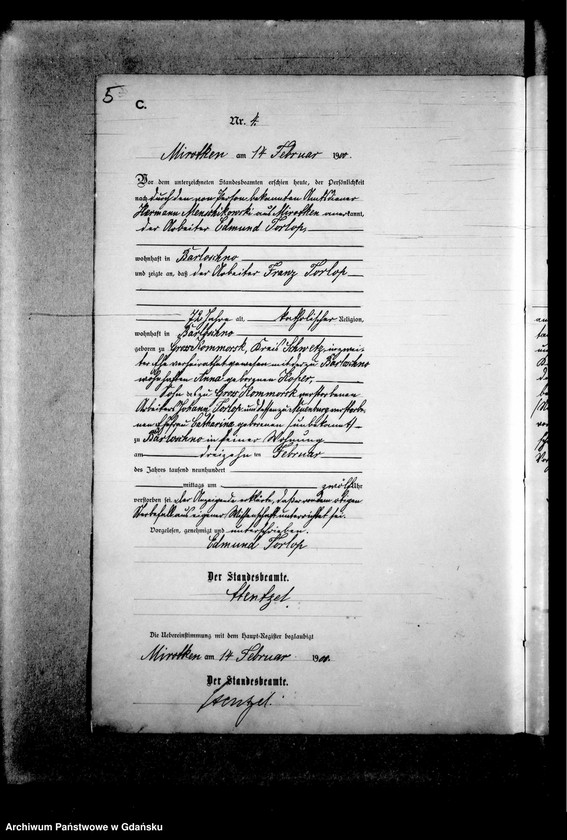 5
C.
Nr. 4.
Mirotken am 14 Februar 1900.
Vor dem unterzeichneten Standesbeamten erschien heute, der Persönlichkeit
nach durch den von Person bekannten Amtsdiener
Hermann Menschikowski aus Mirotken anerkannt,
der Arbeiter Edmund Torlop,
wohnhaft in Barloschno
und zeigte an, daß der Arbeiter Franz Torlop
72 Jahre alt, katholischer Religion,
wohnhaft in Barloschno
geboren zu Gross Kommorsk, Kreis Schwetz, in zwei-
ter Ehe verheirathet gewesen mit der zu Barloschno
wohnhaften Anna geborenen
Sohn des zu Gross Kommorsk verstorbenen
Arbeiters Johann Torlop und dessen zu Neuenburg verstorbe-
nen Ehefrau Catharina geborenen (unbekannt)
zu Barloschno in seiner Wohnung
am dreizehn ten Februar
des Jahres tausend neunhundert
mittags um zwölf Uhr
verstorben sei. Der Anzeigende erklärte, daß er von dem obigen
Sterbefall aus eigener Wissenschaft unterrichtet sei.
Vorgelesen, genehmigt und unterschrieben.
Edmund Torlop
Der Standesbeamte.
Stentzel.
Die Uebereinstimmung mit dem Haupt-Register beglaubigt
Mirotken am 14 Februar 1900.
Der Standesbeamte.
Stentzel.
Archiwum Państwowe w Gdańsku